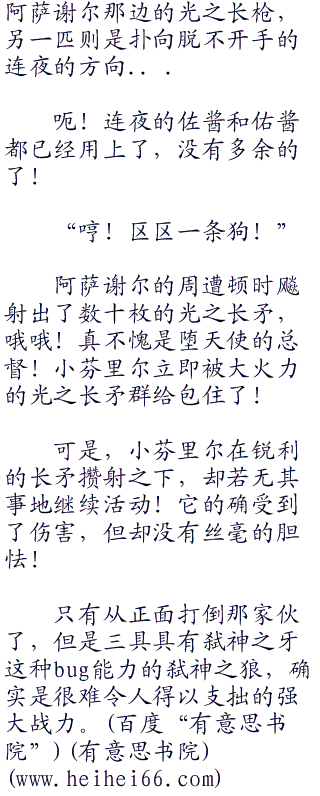 阿萨谢尔那边的光之长枪，
另一匹则是扑向脱不开手的
连夜的方向．．．
呃！连夜的佐酱和佑酱
都已经用上了，没有多余的
了！
“哼！区区一条狗！”
阿萨谢尔的周遭顿时飚
射出了数十枚的光之长矛，
哦哦！真不愧是堕天使的总
督！小芬里尔立即被大火力
的光之长矛群给包住了！
可是，小芬里尔在锐利
的长矛攒射之下，却若无其
事地继续活动！它的确受到
了伤害，但却没有丝毫的胆
怯！
只有从正面打倒那家伙
了，但是三具具有弑神之牙
这种bug能力的弑神之狼，确
实是很难令人得以支拙的强
大战力。(百度“有意思书
院”)(有意思书院)
(www.heihei66.com)